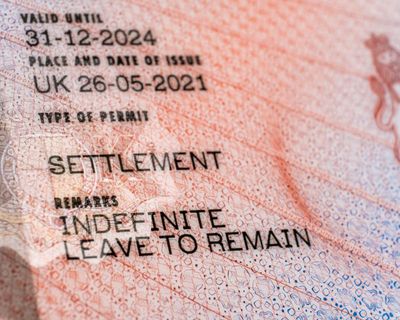 VALID UNTIL
31-12-2024
PLACE AND DATE OF ISSUE
UK 26-05-2021
TYPE OF PERMIT
SETTLEMENT
REMARKS
INDEFINITE
LEAVE TO REMAIN